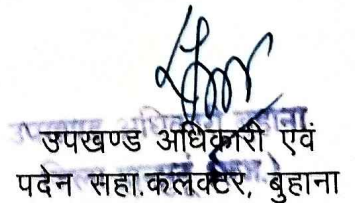 उपखण्ड अधिकारी एवं
पदेन सहा.कलक्टर, बुहाना